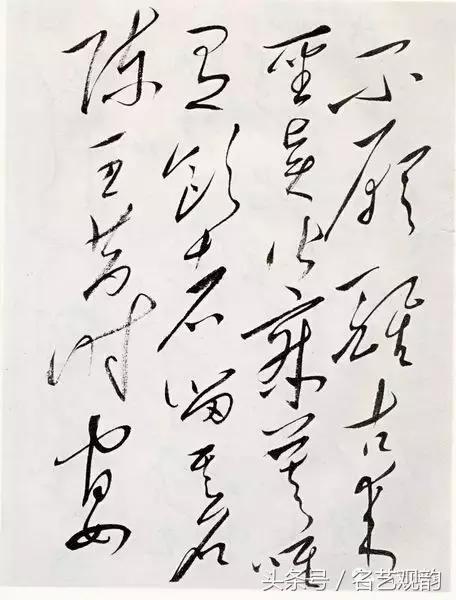 不願醒古来
聖賢皆寂莫唯
有飲者留其名
陳王昔時宴
头条号 / 名艺观韵